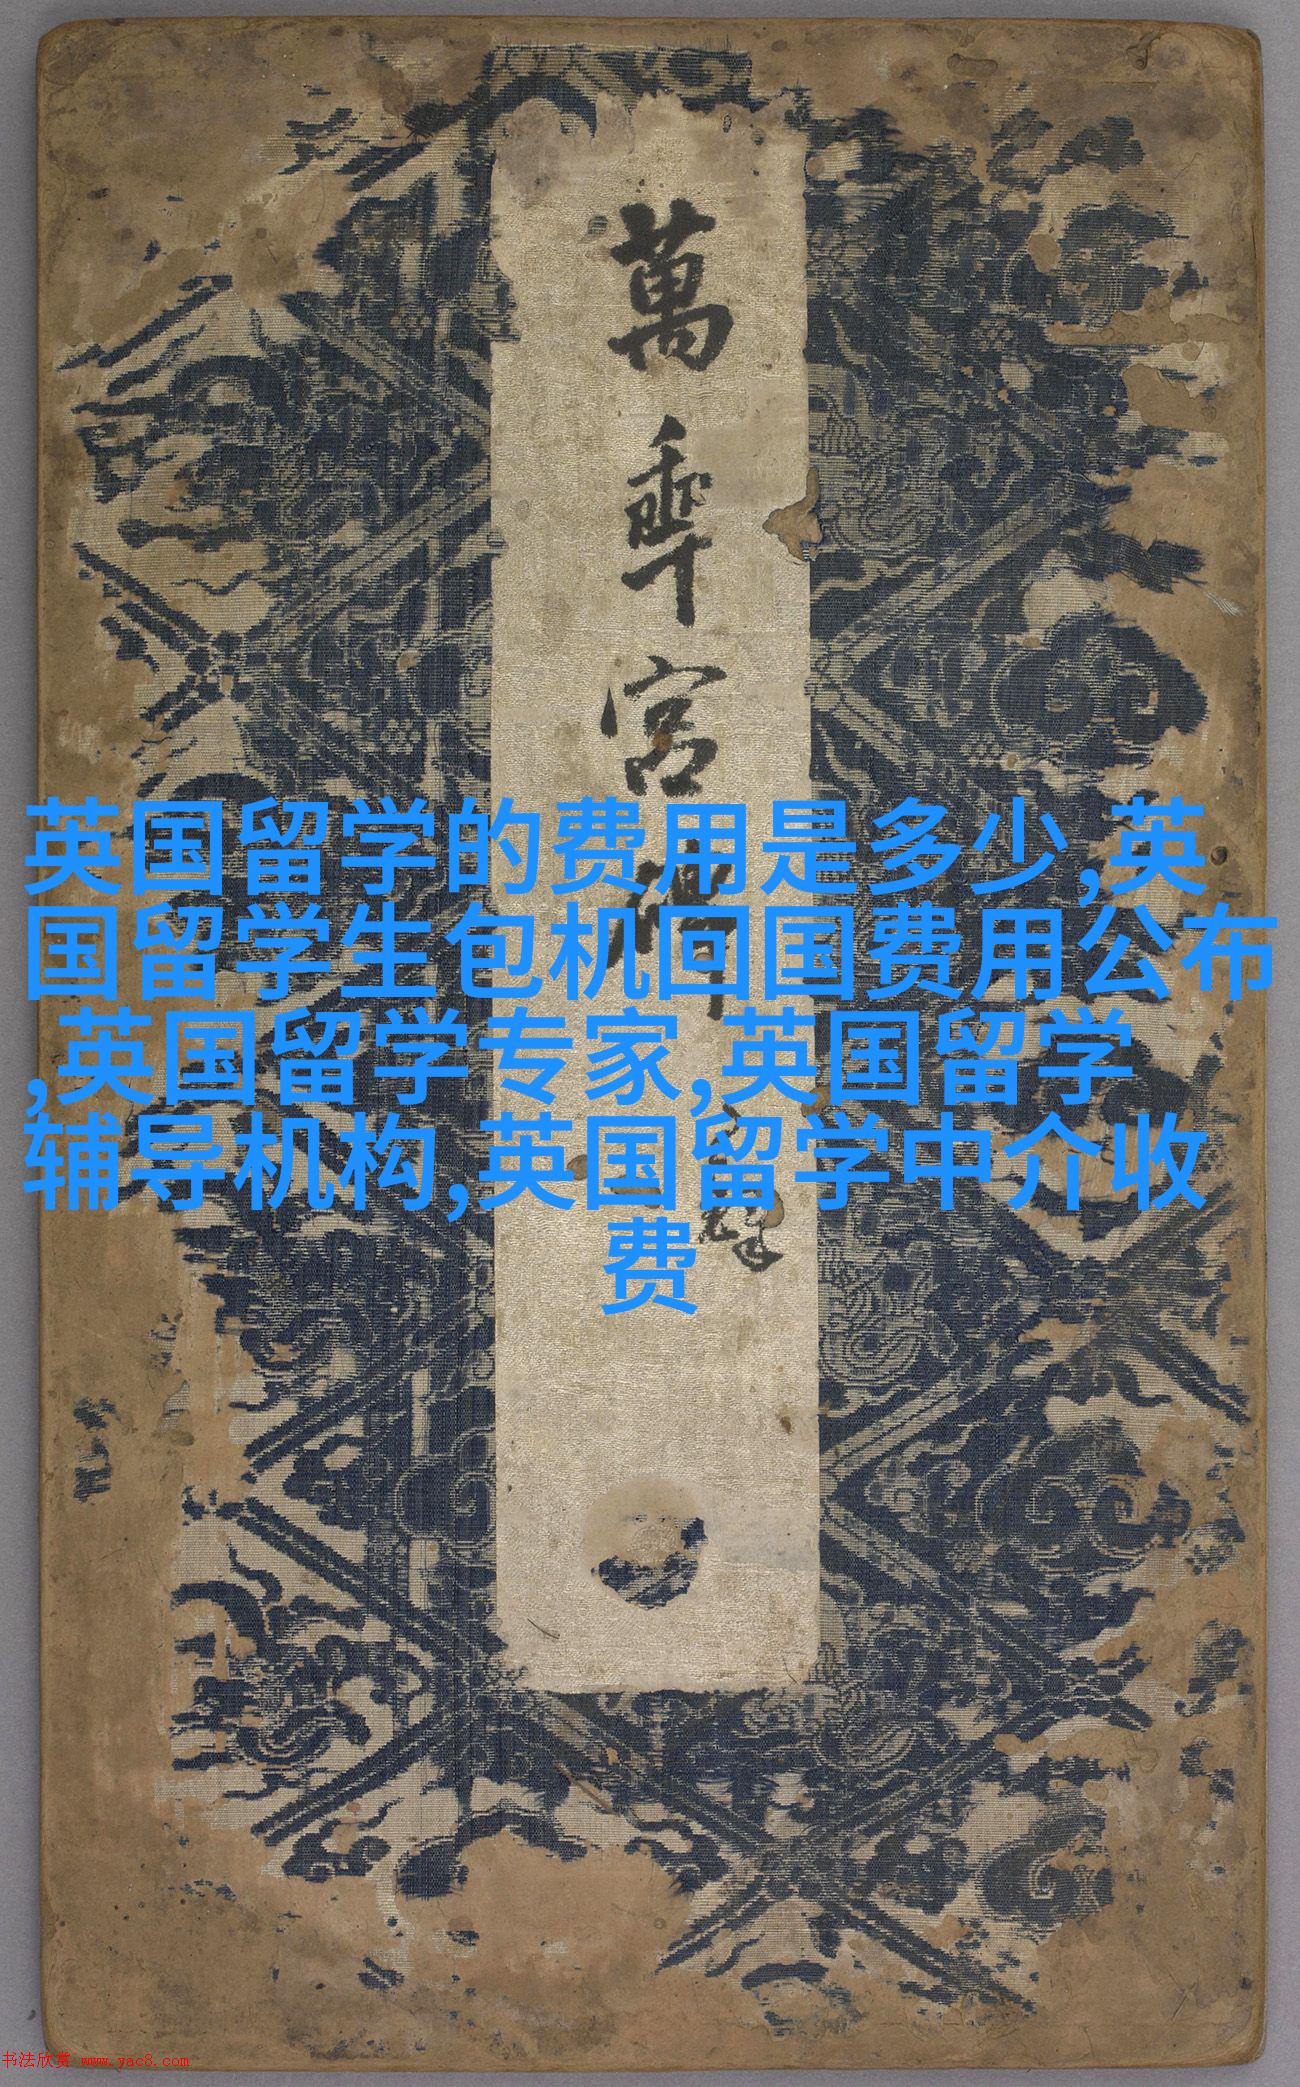 萬
年
宮
碑
英国留学的费用是多少,英
国留学生包机回国费用公布
,英国留学专家,英国留学
辅导机构,英国留学中介收
费
书法欣赏 www.yac8.com